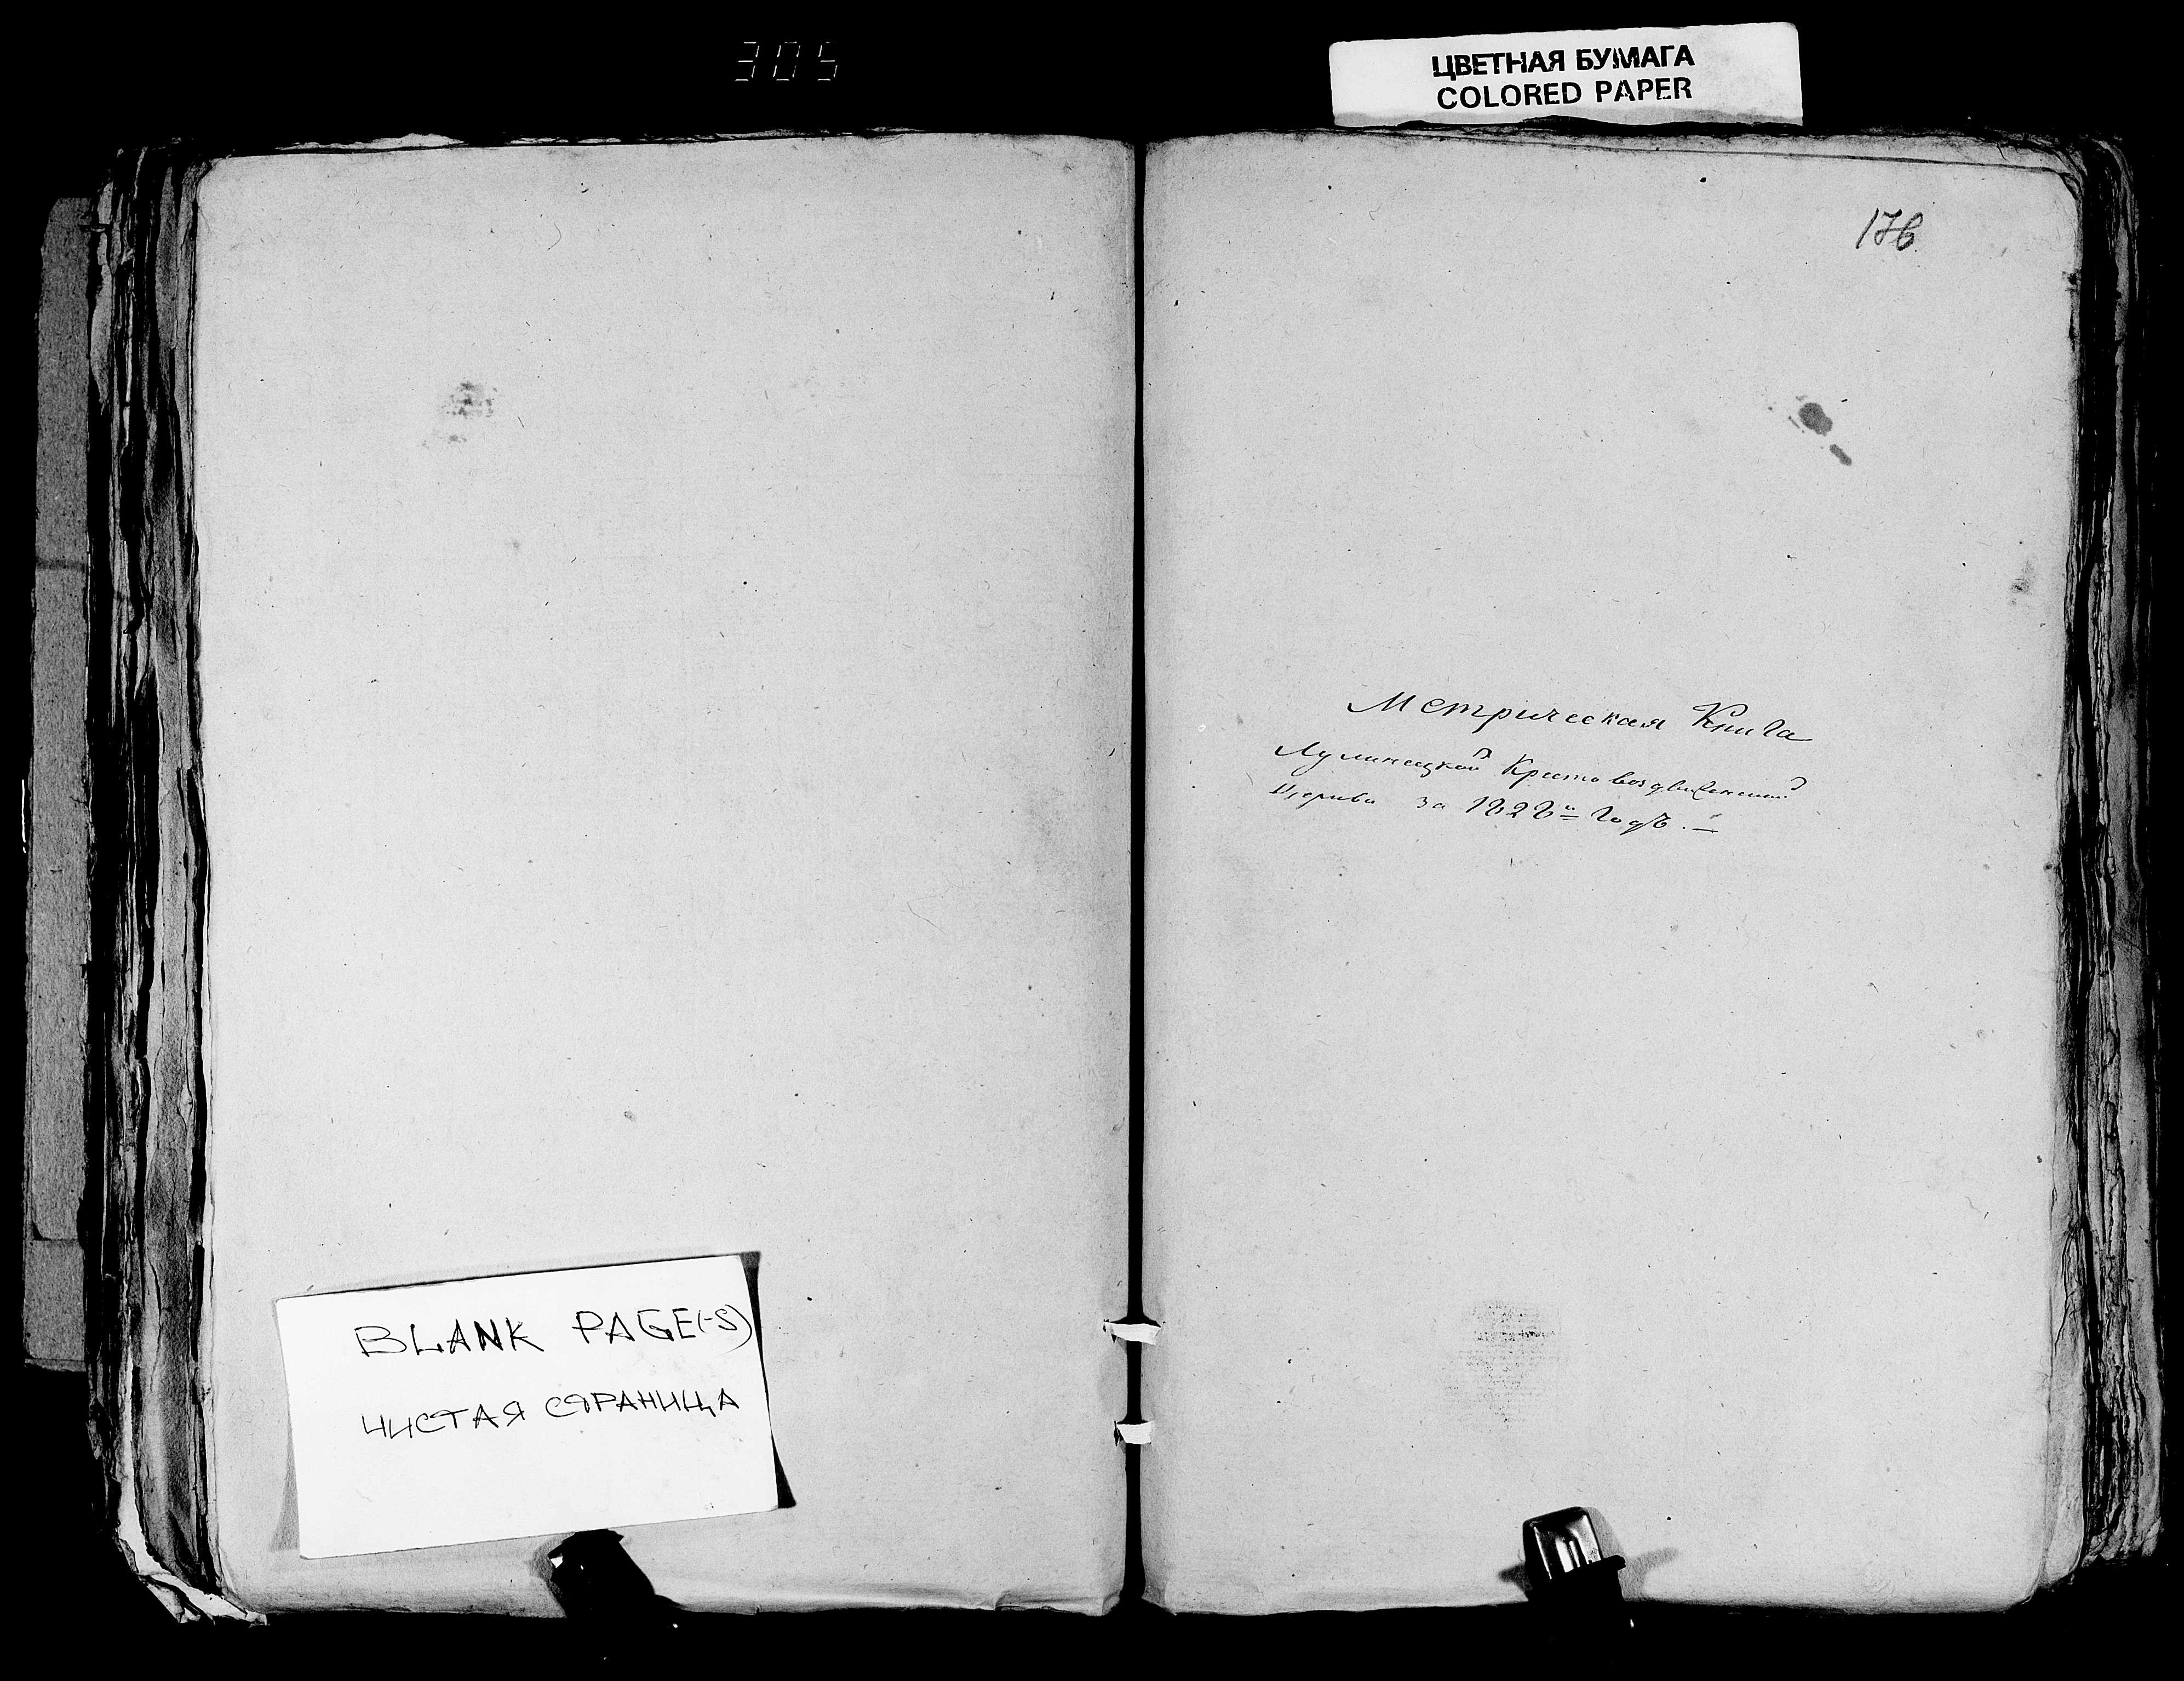 305
ЦВЕТНАЯ БУМАГА
COLORED PAPER
176
Метрическая Книга
Лулинецкой Кресто воздвиженской
Церкви за 1828й годъ. —
BLANK PAGE(-S)
ЧИСТАЯ СТРАНИЦА